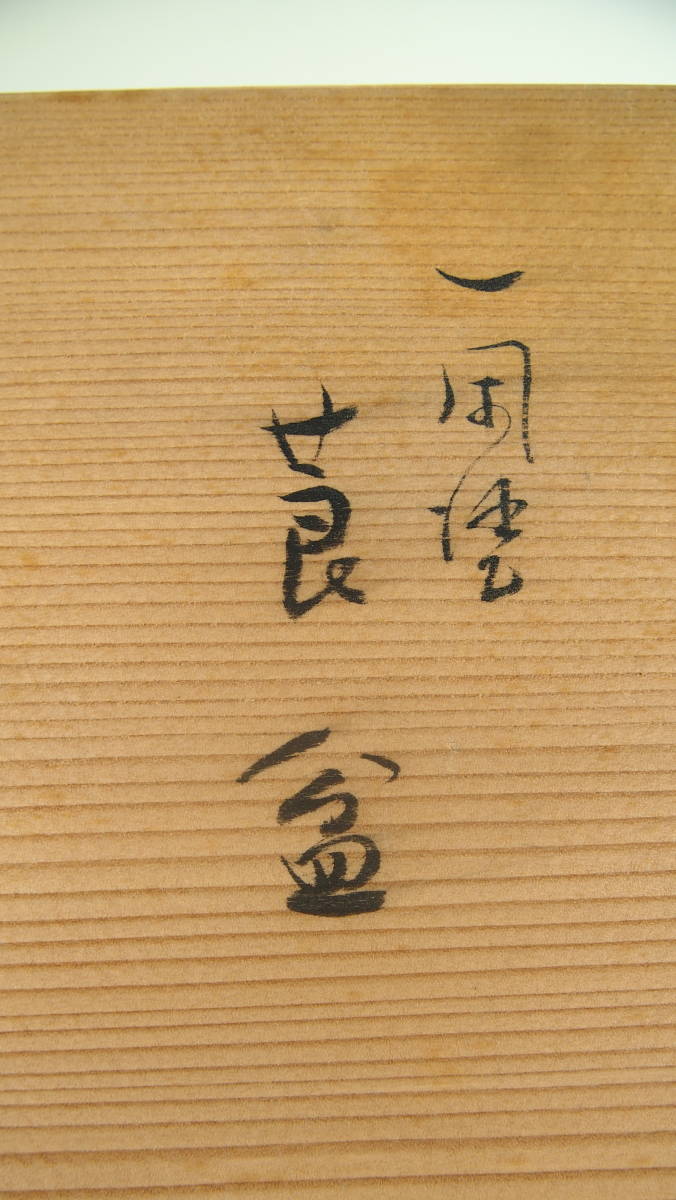 一閑塗
莨盆